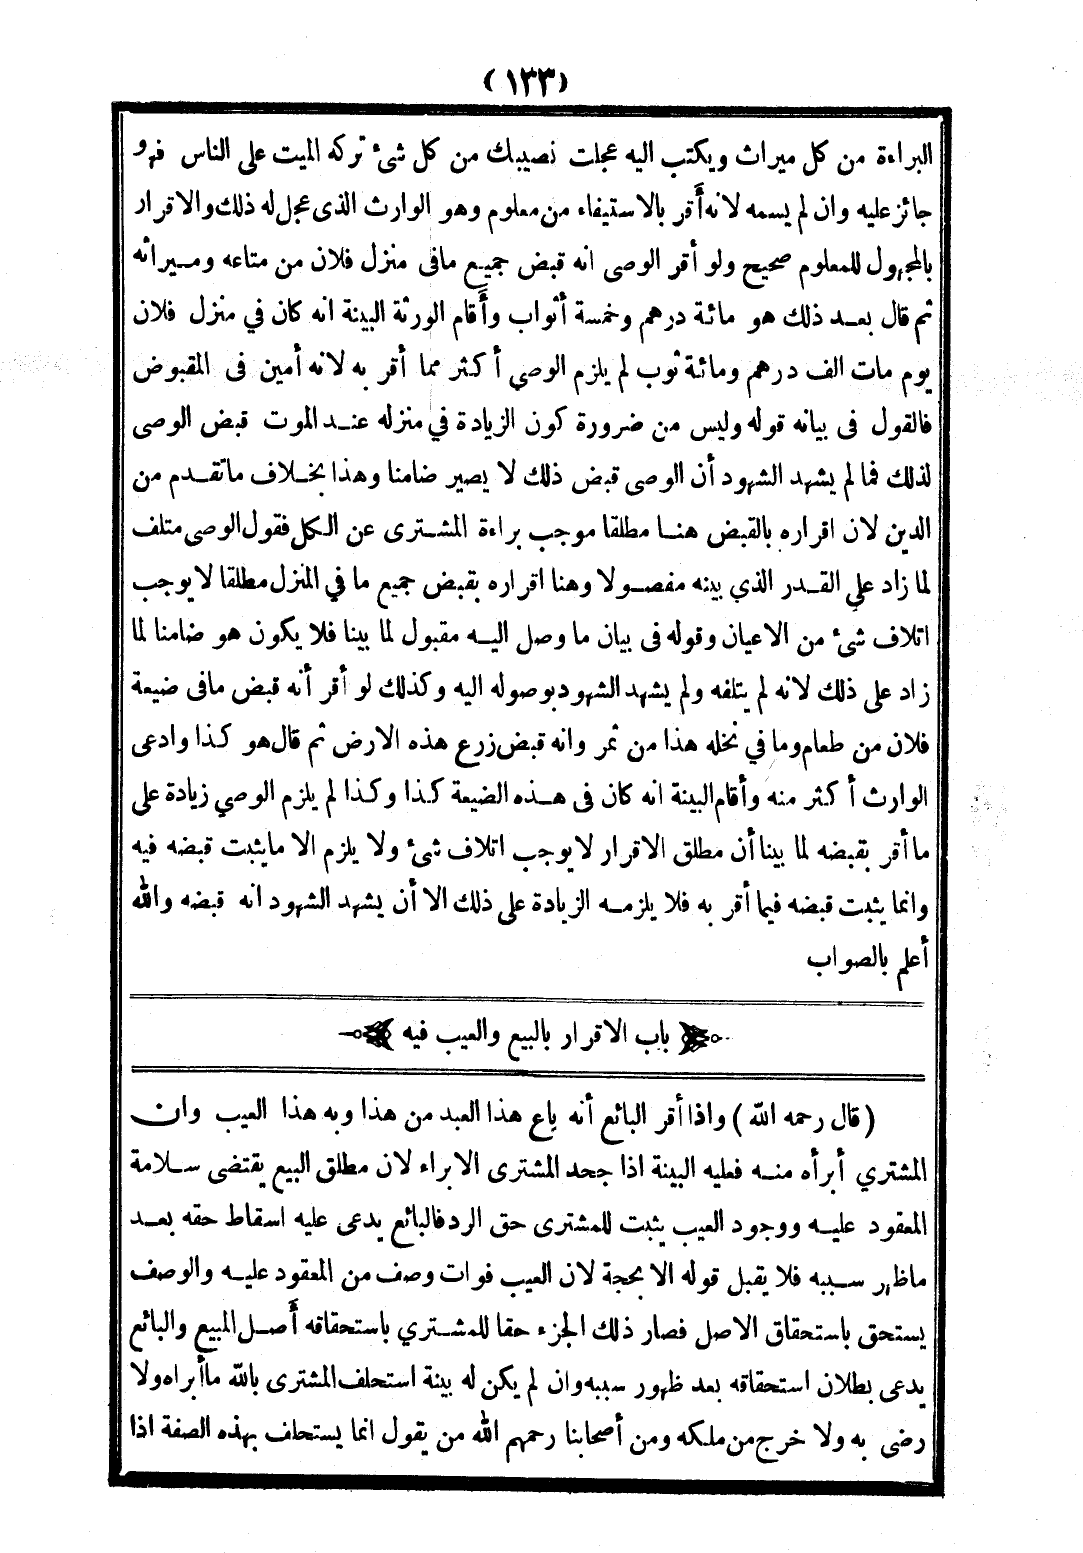 (١٣٣)
البراءة من كل ميراث ويكتب اليه عجلت نصيبك من كل شئ تركه الميت على الناس فهو
جائز عليه وان لم يسمه لانه أقر بالاستيفاء من معلوم وهو الوارث الذى عجل له ذلك والاقرار
بالمجهول للمعلوم صحيح ولو أقر الوصى انه قبض جميع مافى منزل فلان من متاعه وميراثه
ثم قال بعد ذلك هو مائة درهم وخمسة أثواب وأقام الورثة البينة انه كان في منزل فلان
يوم مات الف درهم ومائة ثوب لم يلزم الوصي أكثر مما أقر به لانه أمين فى المقبوض
فالقول فى بيانه قوله وليس من ضرورة كون الزيادة في منزله عند الموت قبض الوصى
لذلك فما لم يشهد الشهود أن الوصى قبض ذلك لا يصير ضامنا وهذا بخلاف ماتقدم من
الدين لان اقراره بالقبض هنا مطلقا موجب براءة المشترى عن الكل فقول الوصى متلف
لما زاد علي القدر الذي بينه مفصولا وهنا اقراره بقبض جميع ما في المنزل مطلقا لا يوجب
اتلاف شئ من الاعيان وقوله فى بيان ما وصل اليه مقبول لما بينا فلا يكون هو ضامنا لما
زاد على ذلك لانه لم يتلفه ولم يشهد الشهود بوصوله اليه وكذلك لو أقر أنه قبض مافى ضيعة
فلان من طعام وما في نخله هذا من ثمر وانه قبض زرع هذه الارض ثم قال هو كذا وادعى
الوارث أكثر منه وأقام البينة انه كان فى هذه الضيعة كذا وكذا لم يلزم الوصي زيادة على
ما أقر بقبضه لما بينا أن مطلق الاقرار لا يوجب اتلاف شئ ولا يلزم الا مايثبت قبضه فيه
وانما يثبت قبضه فيما أقر به فلا يلزمه الزيادة على ذلك الا أن يشهد الشهود انه قبضه والله
أعلم بالصواب
باب الاقرار بالبيع والعيب فيه
(قال رحمه الله) واذا أقر البائع أنه باع هذا العبد من هذا وبه هذا العيب وان
المشتري أبرأه منه فعليه البينة اذا جحد المشترى الابراء لان مطلق البيع يقتضى سلامة
المعقود عليه ووجود العيب يثبت للمشترى حق الرد فالبائع يدعى عليه اسقاط حقه بعد
ماظهر سببه فلا يقبل قوله الا بحجة لان العيب فوات وصف من المعقود عليه والوصف
يستحق باستحقاق الاصل فصار ذلك الجزء حقا للمشتري باستحقاقه أصل المبيع والبائع
يدعى بطلان استحقاقه بعد ظهور سببه وان لم يكن له بينة استحلف المشترى بالله ما أبراه ولا
رضى به ولا خرج من ملكه ومن أصحابنا رحمهم الله من يقول انما يستحلف بهذه الصفة اذا